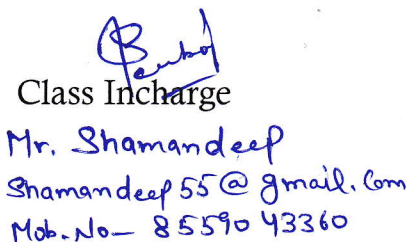 Class Incharge
Mr. Shamandeep
Shamandeep55@gmail.com
Mob. No- 85590 43360